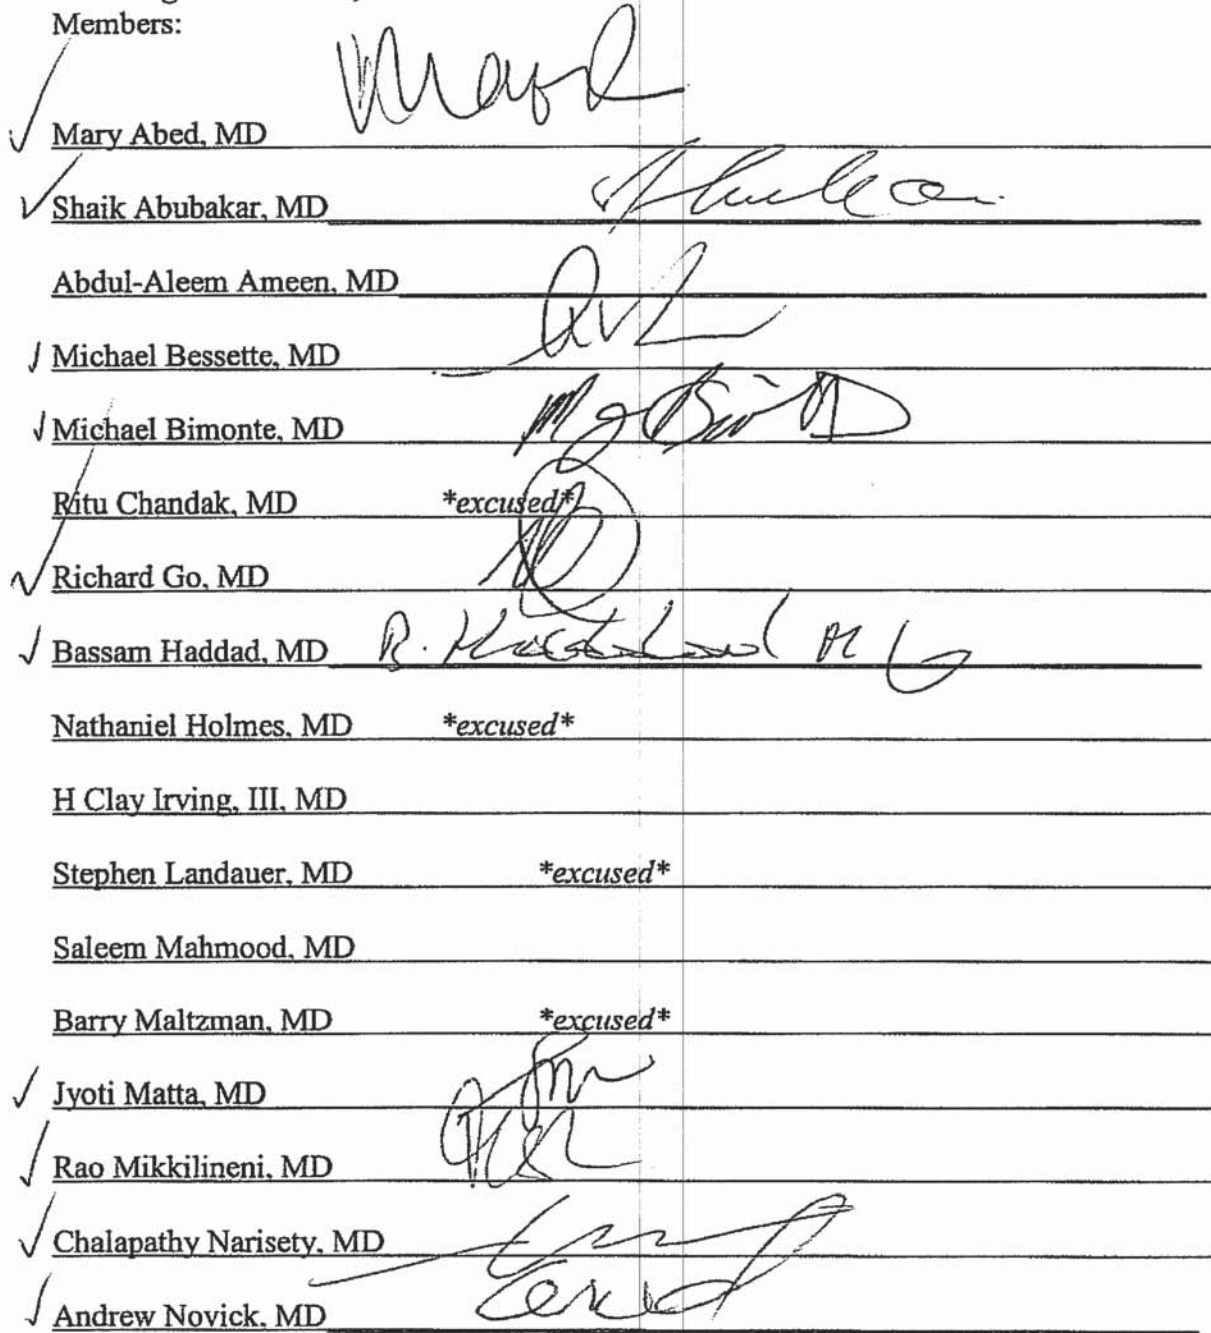 Members:
Mary Abed, MD
Shaik Abubakar, MD
Abdul-Aleem Ameen, MD
Michael Bessette, MD
Michael Bimonte, MD
Ritu Chandak, MD *excused*
Richard Go, MD
Bassam Haddad, MD B. Haddad MD
Nathaniel Holmes, MD *excused*
H Clay Irving, III, MD
Stephen Landauer, MD *excused*
Saleem Mahmood, MD
Barry Maltzman, MD *excused*
Jyoti Matta, MD
Rao Mikkilineni, MD
Chalapathy Narisety, MD
Andrew Novick, MD